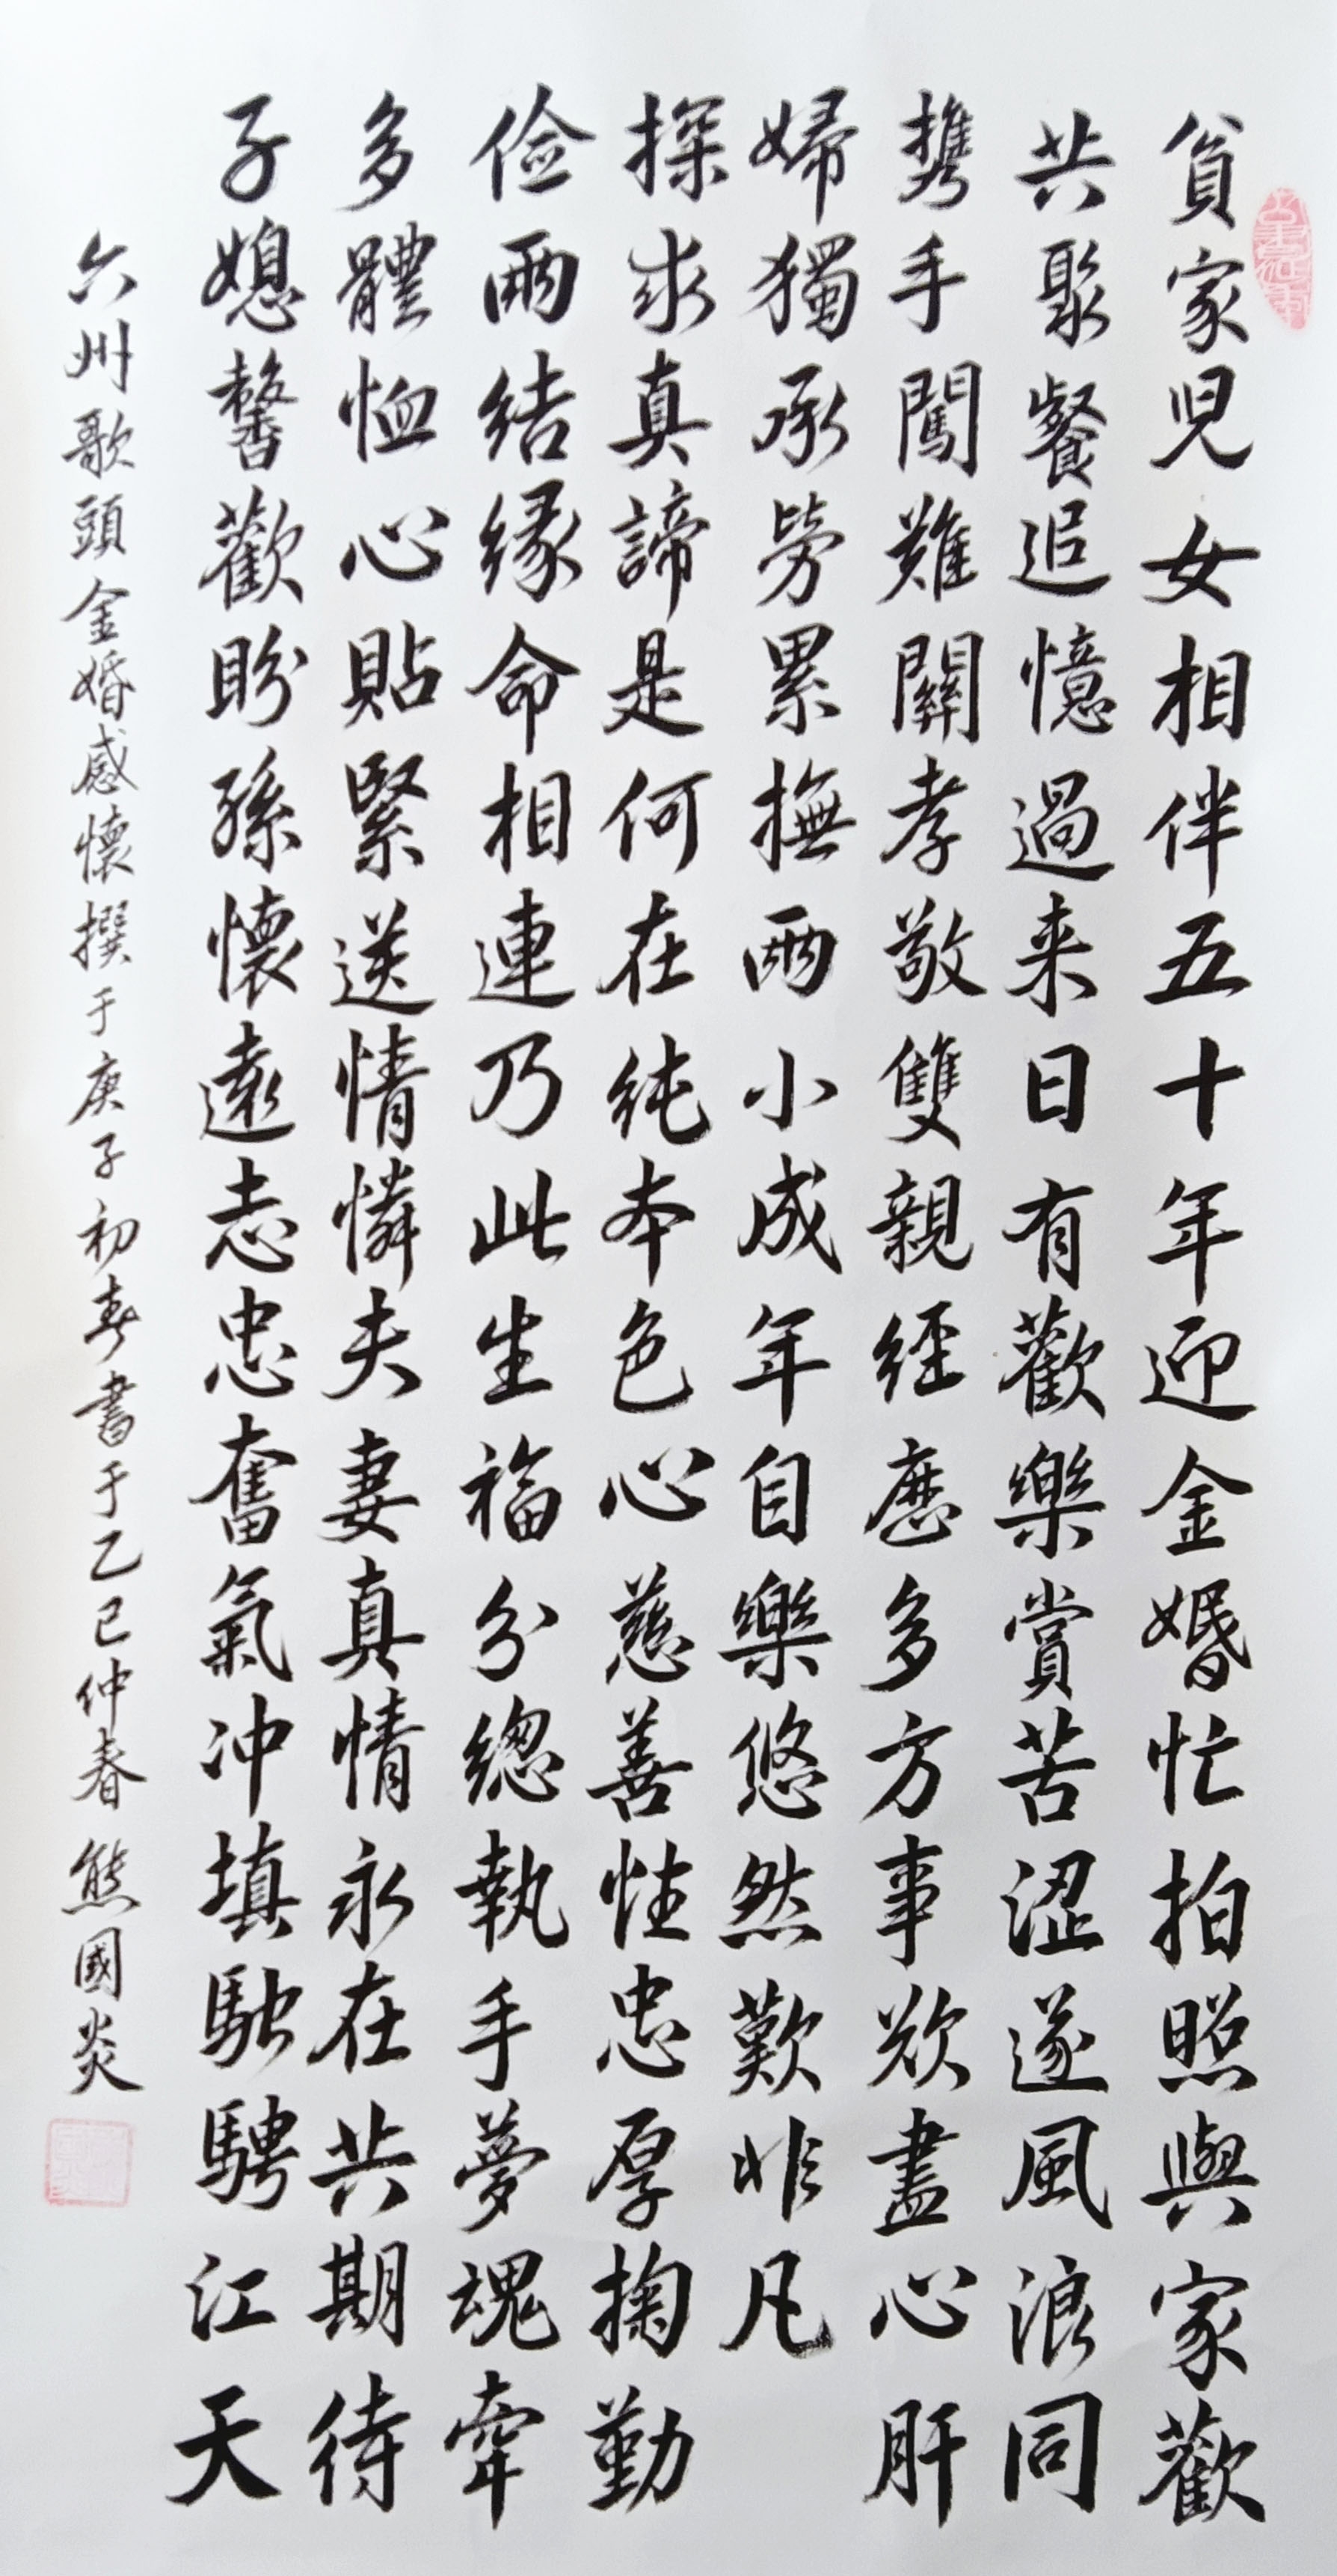 貧家児女相伴五十年迎金婚忙拍照與家歡
共聚餐追憶過来日有歡樂賞苦涩遂風浪同
携手闖難關孝敬雙親經歷多方事欲盡心肝
婦獨承勞累撫兩小成年自樂悠然歎非凡
探求真諦是何在純本色心慈善性忠厚掬勤
俭兩结缘命相連乃此生福分總執手夢魂牽
多體恤心貼緊送情憐夫妻真情永在共期待
子媳馨歡盼孫懷遠志忠奮氣冲填馳騁江天
六州歌頭金婚感懷撰于庚子初春書于乙巳仲春熊國炎